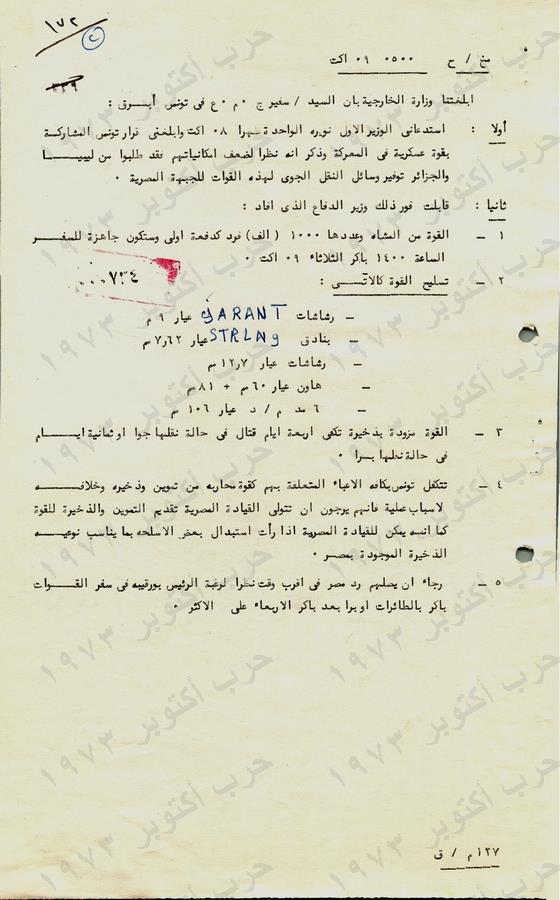 ١٧٢
٢
٣٣٩
مخ / ح ٠٥٠٠ ٠٩ اكت
ابلغتنا وزارة الخارجية بان السيد / سفير ج ٠ م ٠ ع فى تونس أبرق :
أولا : استدعانى الوزير الاول نويره الواحدة ظهرا ٠٨ اكت وابلغنى قرار تونس المشاركة
بقوة عسكرية فى المعركة وذكر انه نظرا لضعف امكانياتهم فقد طلبوا من ليبيـا
والجزائر توفير وسائل النقل الجوى لهذه القوات للجبهة المصرية ٠
ثانيا : قابلت فور ذلك وزير الدفاع الذى افاد :
١ – القوة من المشاه وعددها ١٠٠٠ ( الف) فرد كدفعة اولى وستكون جاهزة للسفـر
الساعة ١٤٠٠ باكر الثلاثاء ٠٩ اكت ٠
٠٠٠٧٣٤
٢ – تسليح القوة كالآتــى :
– رشاشات GARANT عيار ٩ م
– بنادق STRLNG عيار ٧٫٦٢م
– رشاشات عيار ١٢٫٧م
– هاون عيار ٦٠م + ٨١م
– ٦ مد م / د عيار ١٠٦ م
٣ – القوة مزودة بذخيرة تكفى اربعة ايام قتال فى حالة نقلها جوا او ثمانية ايـــام
فى حالة نقلها بـرا ٠
٤ – تتكفل تونس بكافه الاعباء المتعلقة بهم كقوة محاربه من تموين وذخيره وخلافـــه
لاسباب عملية فانهم يرجون ان تتولى القيادة المصرية تقديم التموين والذخيرة للقوة
كما انـه يمكن للقيادة المصرية اذا رأت استبدال بعض الاسلحه بما يناسب نوعيـه
الذخيرة الموجودة بمصـر ٠
٥ – رجاء ان يصلهم رد مصر فى اقرب وقت نظرا لرغبة الرئيس بورقيبه فى سفر القــوات
باكر بالطائرات او برا بعد باكر الاربعاء على الاكثر ٠
١٢٧م / ق
حرب أكتوبر ١٩٧٣